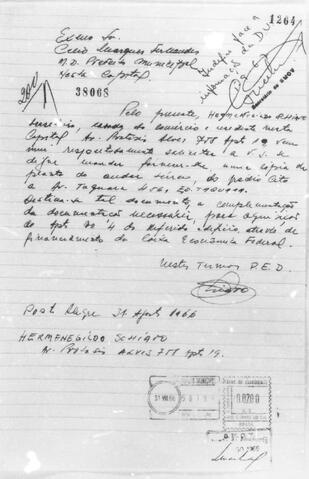 1264
Exmo Sr.
Celio Marques Fernandes
M.D. Prefeito Municipal
Nesta Capital
Indefiro face a
informação da D.U.
38068
Pelo presente, Hermenegildo Schiavo
brasileiro, casado do comercio e residente nesta
Capital Av. Protasio Alves 758 Apto 19 vem
mui respeitosamente solicitar a V.S. se
digne mandar fornecer-me, uma cópia da
planta do andar térreo do predio sito
a Av. Taquara
Destina-se tal documento, a complementação
da documentação necessária, para aquisição
do Apto. No 4 do referido edificio, através de
financiamento da Caixa Economica Federal.
Nestes Termos P.E.D.
Porto Alegre 31 Agosto 1966
HERMENEGILDO SCHIAVO
Av. Protasio ALVES 758 Apto 19.
31 VIII 66
0200
BRASIL